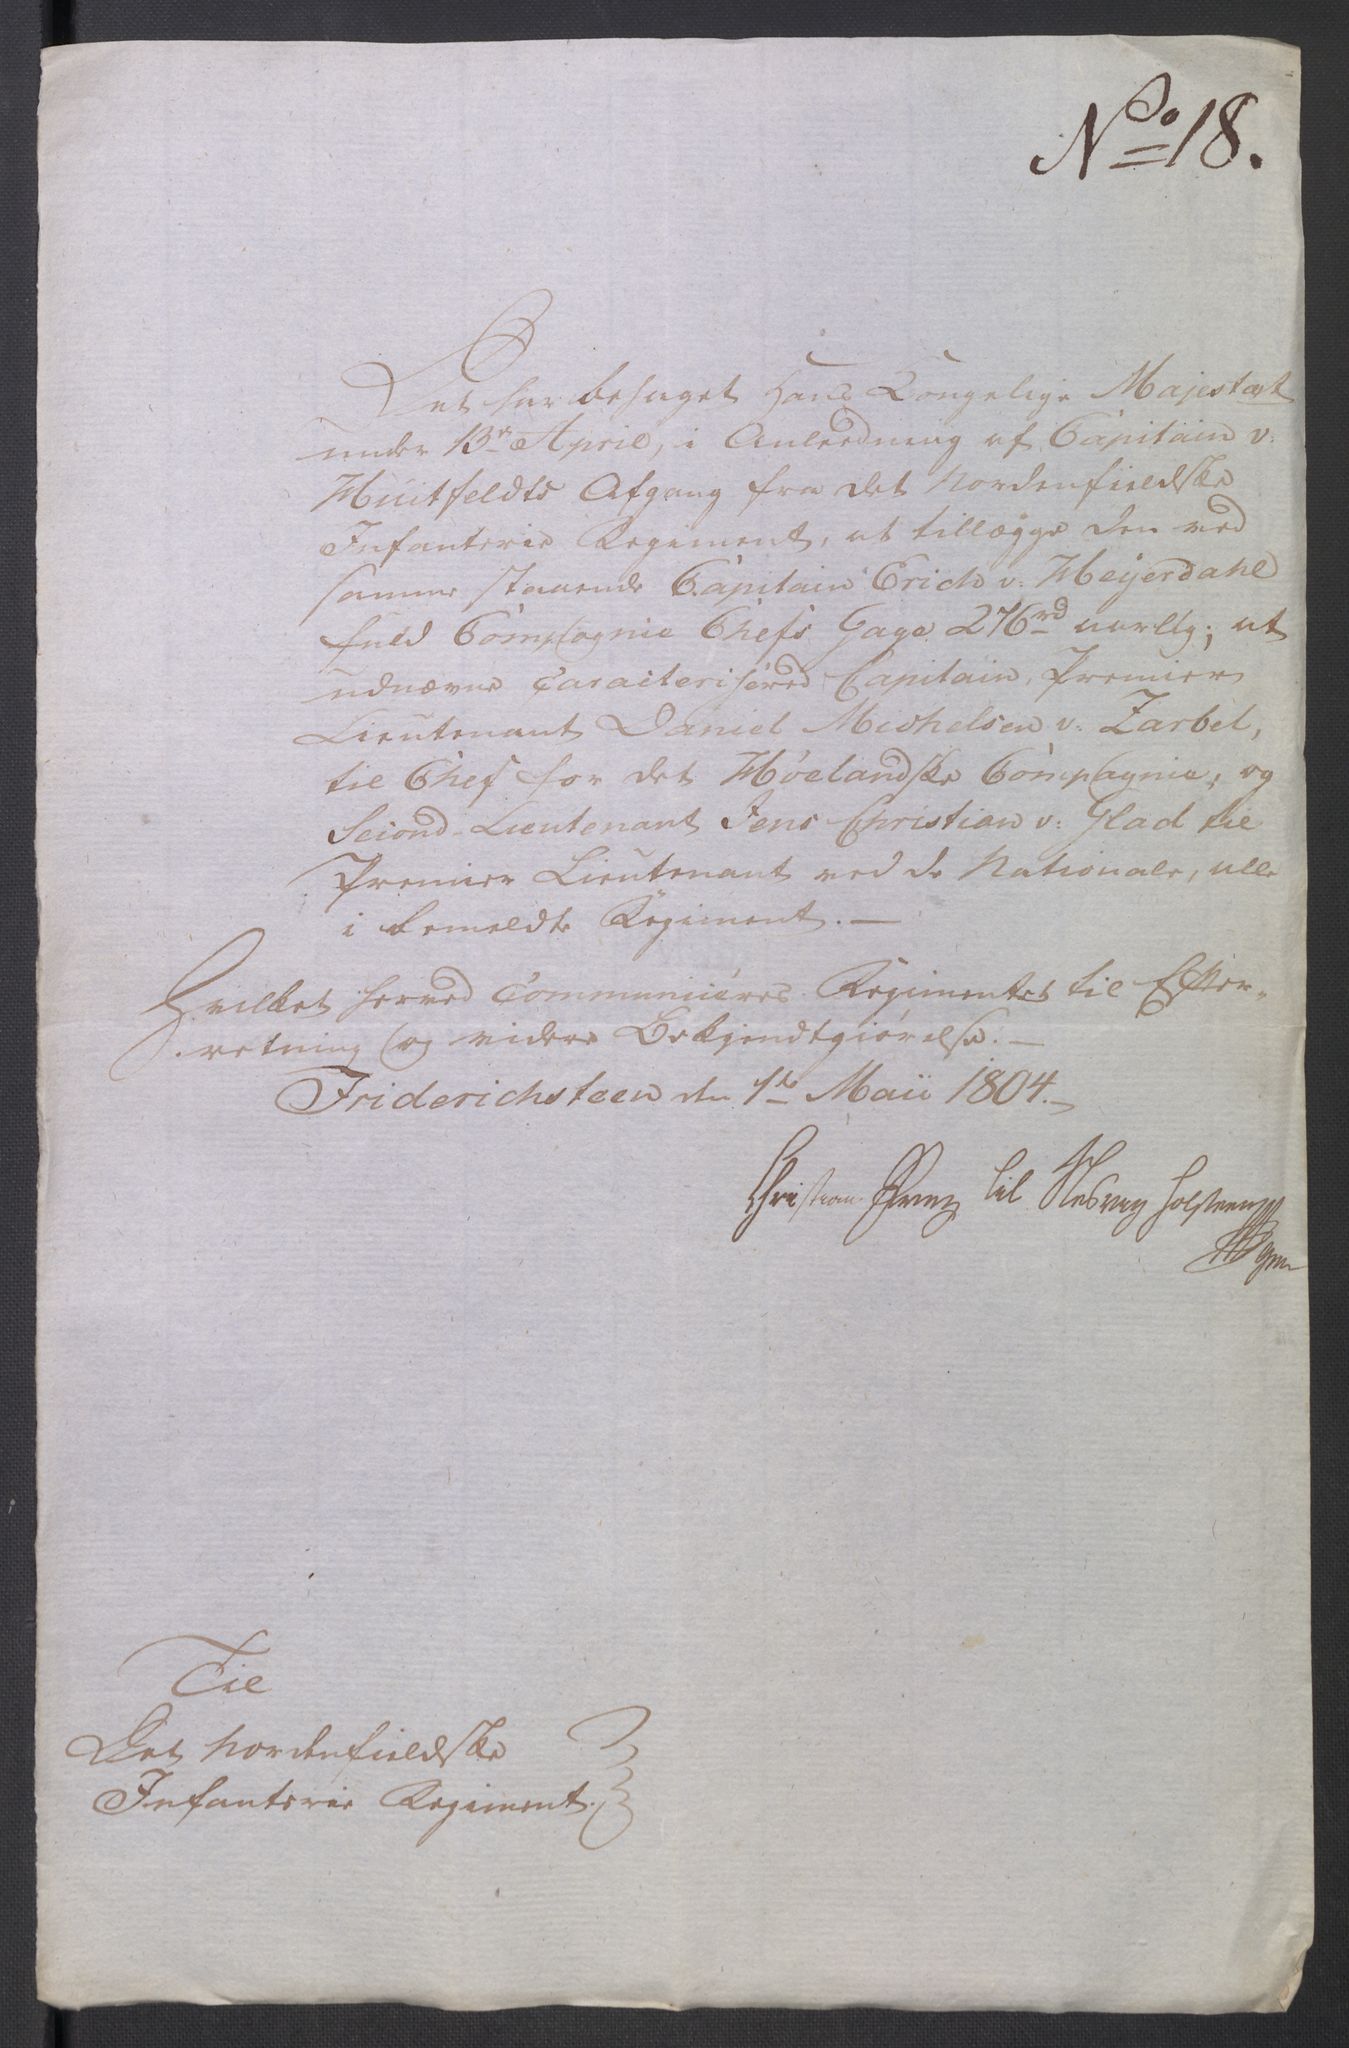 No 18.
Det har behaget Hans Kongelige Majestæt
under 13de April, i Anledning af Capitain v:
Huitfeldts Afgang fra det Nordenfieldske
Infanterie Regiment, at tillægge den ved
samme staaende Capitain Erich v: Heyerdahl
fuld Compagnie Chefs Gage 276rd aarlig; at
udnævne Caracterisered Capitain, Premier
Lieutenant Daniel Michelsen v: Zarbel,
til Chef for det Høelandske Compagnie, og
Second-Lieutenant Jens Christian v: Glad til
Premier Lieutenant ved de Nationale, alle
i bemeldte Regiment. —
Hvilket herved Communiceres Regimentet til Efter-
retning og videre Bekjendtgiørelse. —
Friderichsteen den 1te Maii 1804. —
Christian Prinz til Slesvig Holsteen
Til
Det Nordenfieldske
Infanterie Regiment.